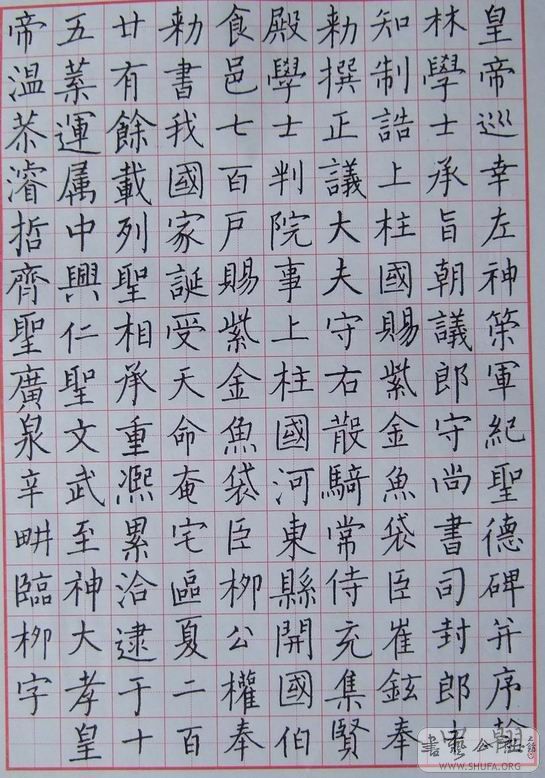 皇帝巡幸左神策軍紀聖德碑并序翰
林學士承旨朝議郎守尚書司封郎
知制誥上柱國賜紫金魚袋臣崔鉉奉
勑撰正議大夫守右散騎常侍充集賢
殿學士判院事上柱國河東縣開國伯
食邑七百戶賜紫金魚袋臣柳公權奉
勑書我國家誕受天命奄宅區夏二百
廿有餘載列聖相承重熙累洽逮于十
五葉運属中興仁聖文武至神大孝皇
帝溫恭濬哲齊聖廣泉辛畊臨柳字
書藝公社
WWW.SHUFA.ORG